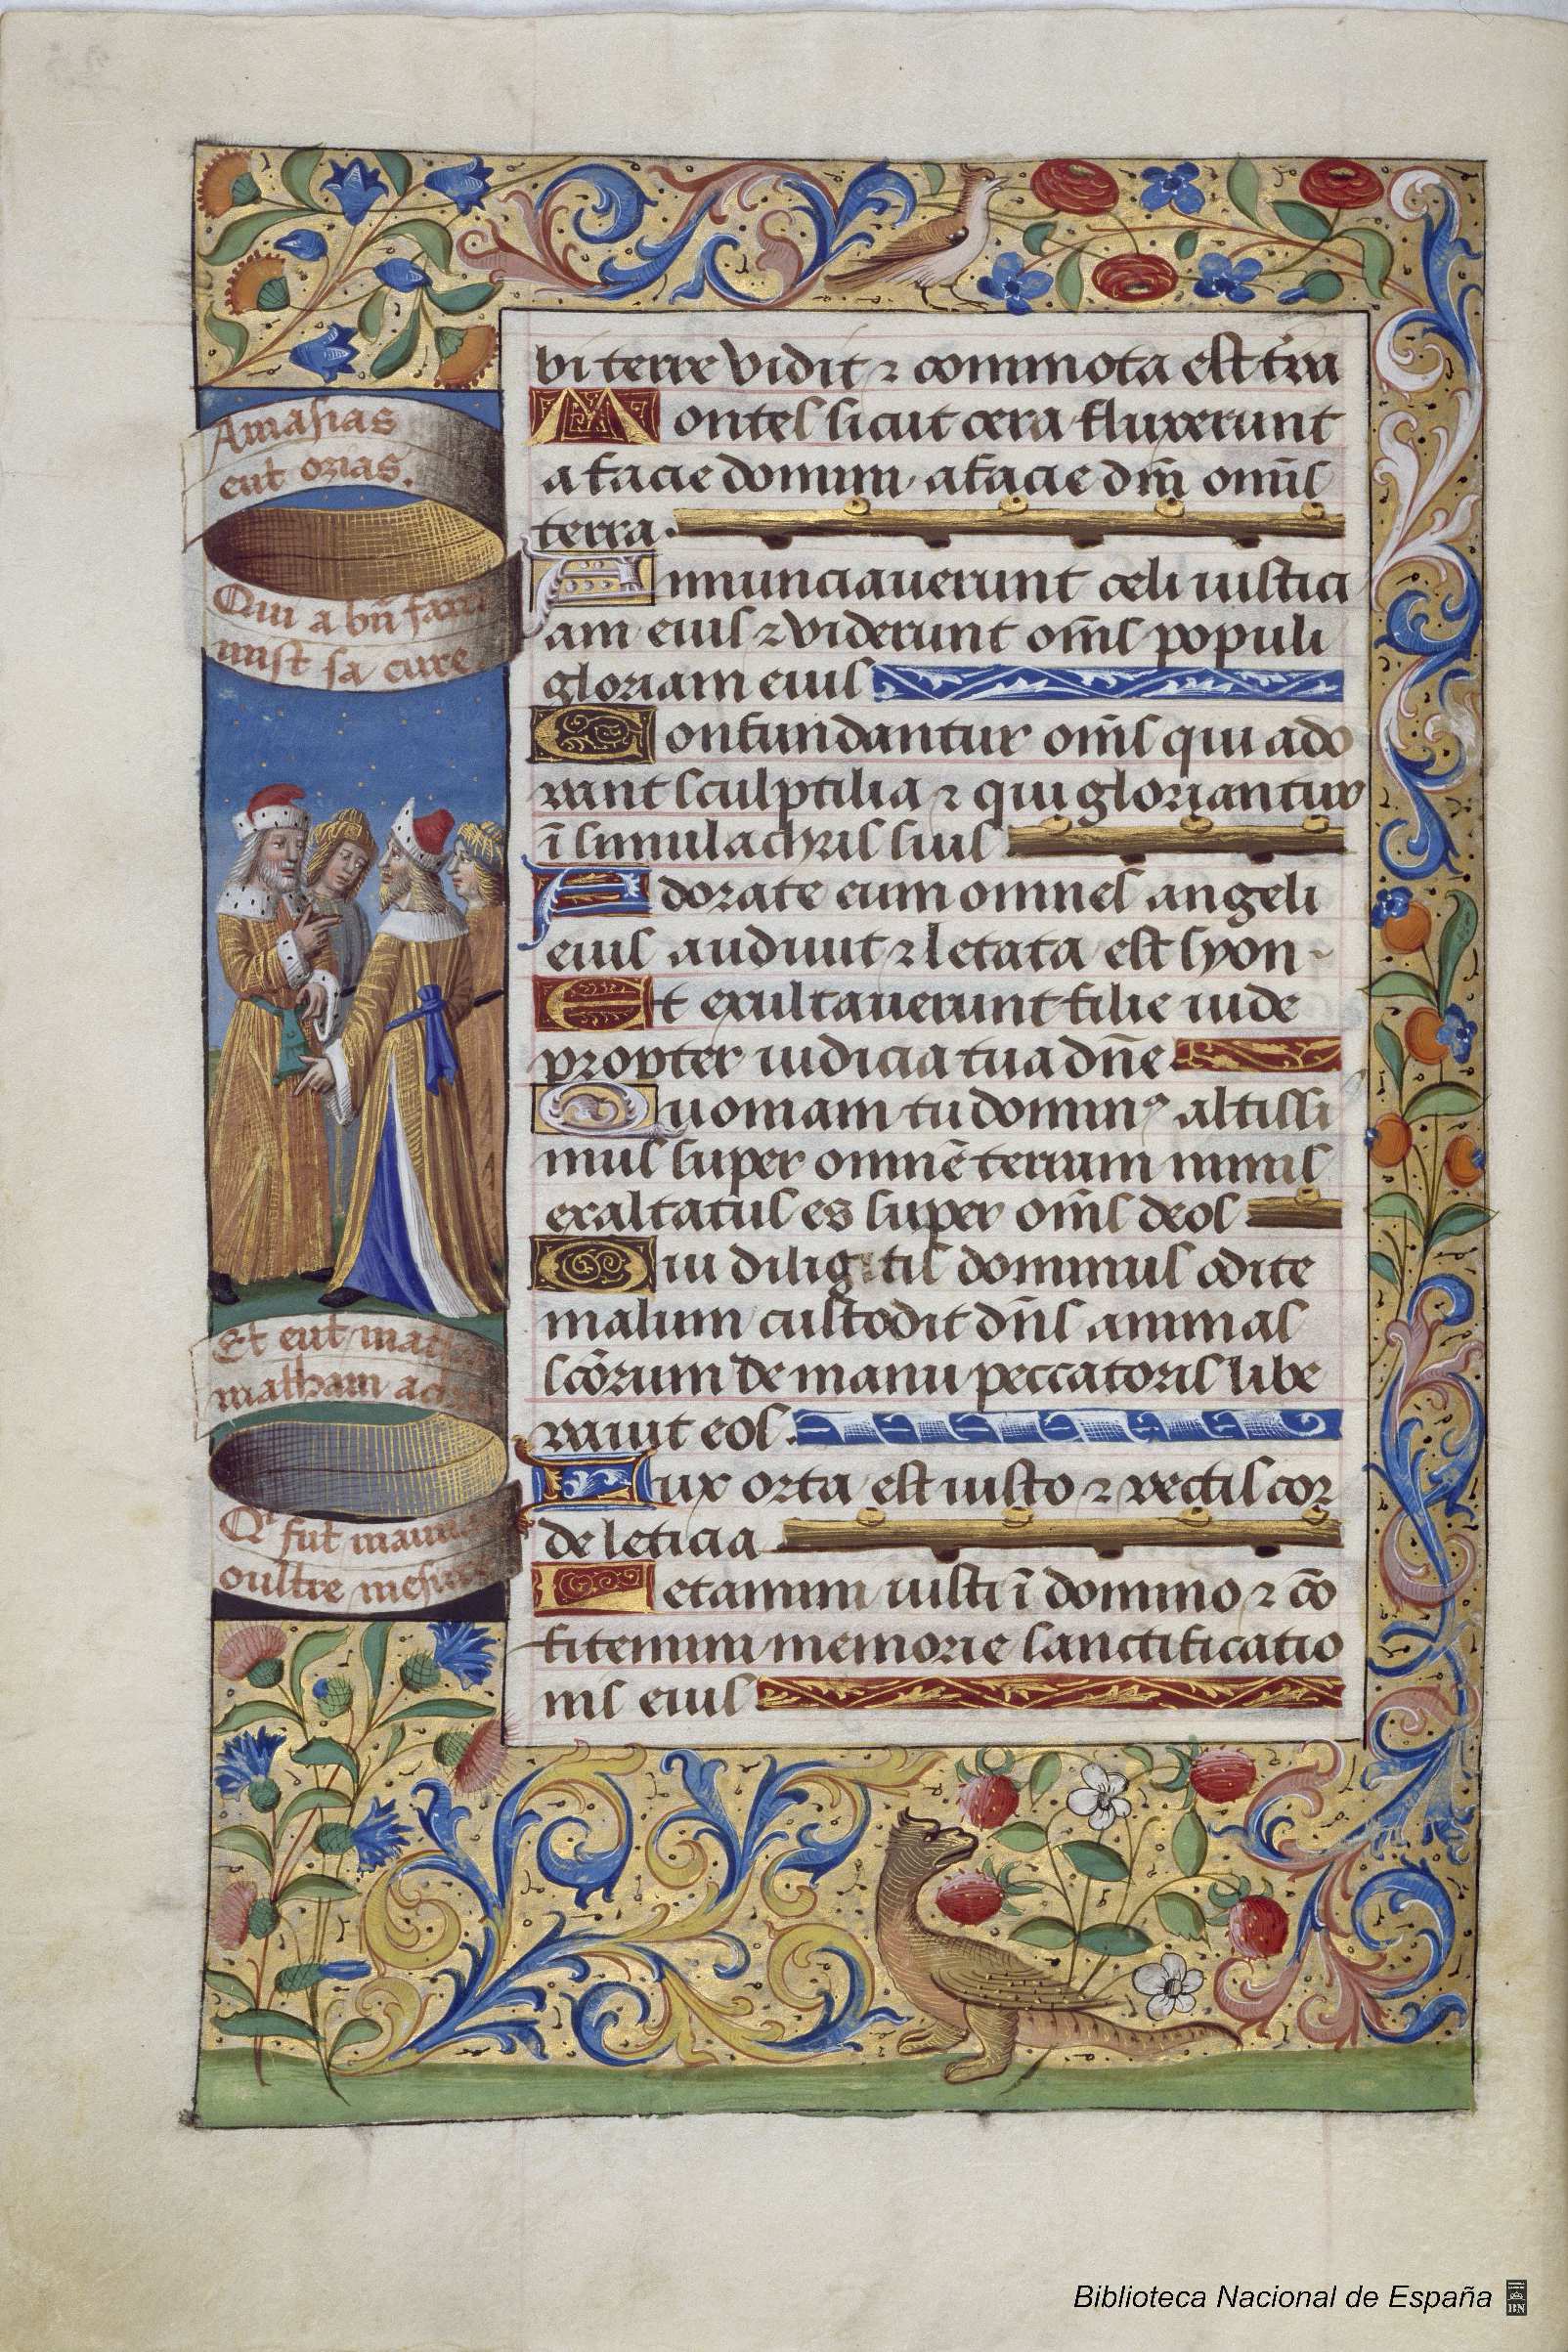 Amasias
eut ozias.
Qui a bn̄ fa
mist sa cure
Et eut
matham
Qi fut mauu
oultre mesu
bi terre vidit ⁊ commota est t̄ra
Montes sicut cera fluxerunt
a facie domini a facie dn̄i om̄is
terra.
Annunciauerunt celi iustici
am eius ⁊ viderunt om̄s populi
gloriam eius
Confundantur om̄s qui ado
rant sculptilia ⁊ qui gloriantur
ī simulachris suis
Adorate eum omnes angeli
eius audiuit ⁊ letata est syon
Et exultauerunt filie iude
propter iudicia tua dn̄e
Quoniam tu dominꝰ altissi
mus super omnē terram nimis
exaltatus es super om̄s deos
Qui diligitis dominus odite
malum custodit dn̄s animas
sc̄orum de manu peccatoris libe
rauit eos.
Lux orta est iusto ⁊ rectis cor
de leticia
Letamini iusti ī domino ⁊ cō
fitemini memorie sanctificatio
nis eius
Biblioteca Nacional de España
BN